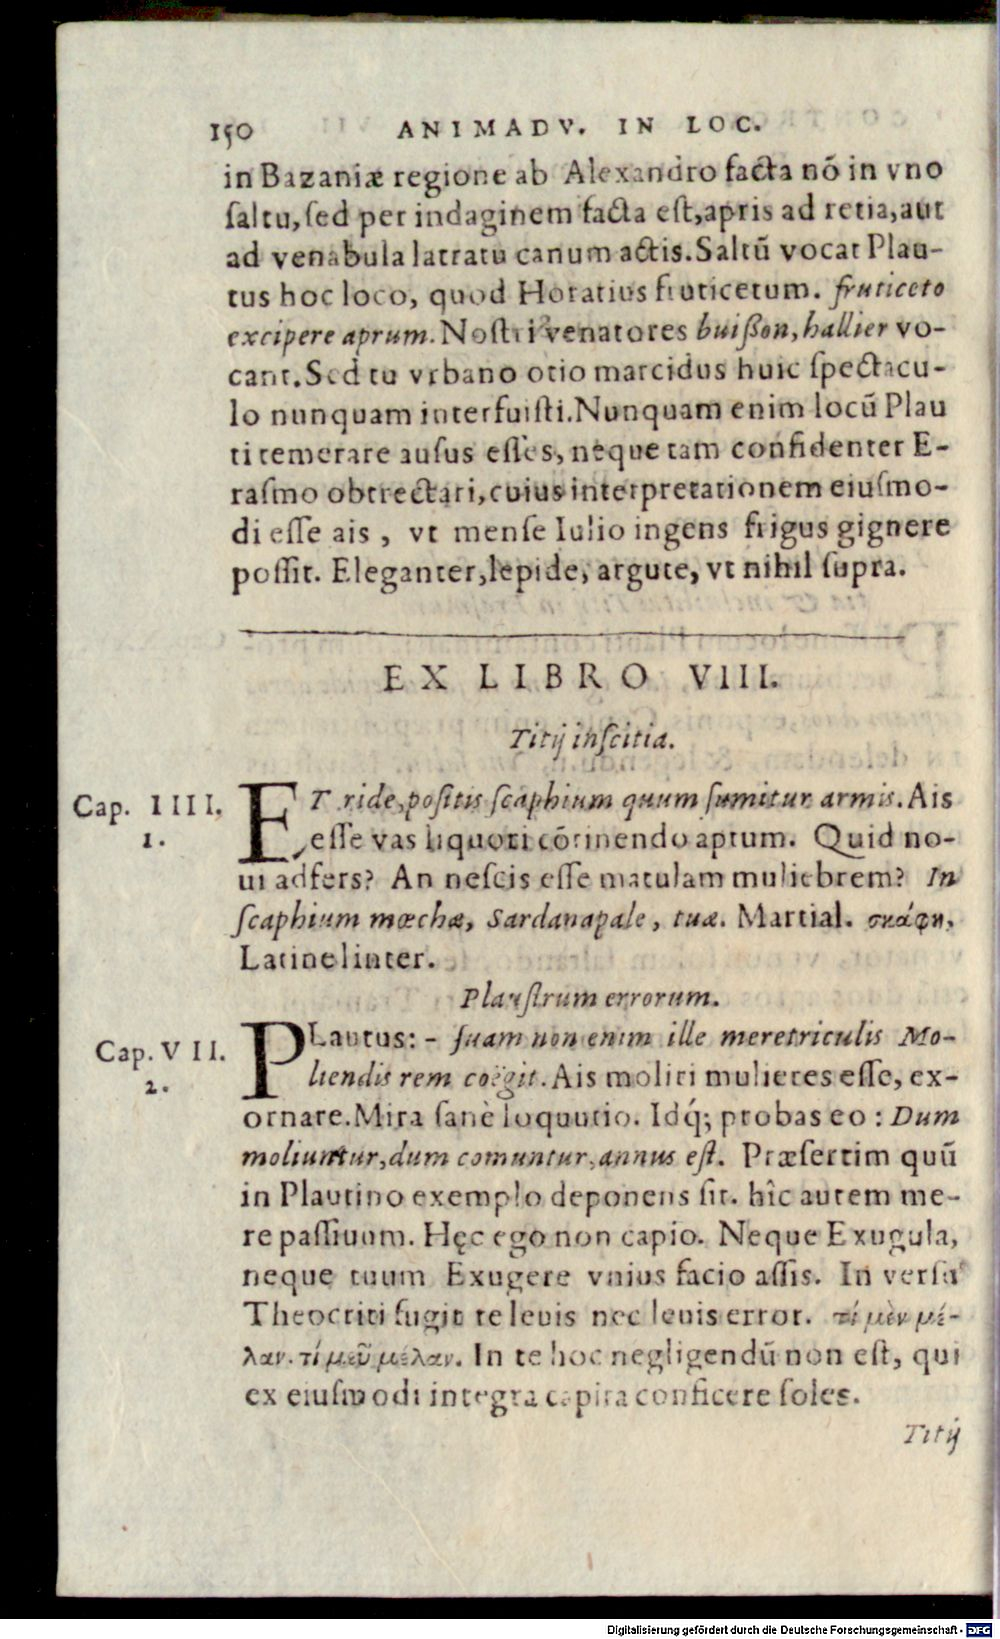 150 ANIMADV. IN LOC.
in Bazaniæ regione ab Alexandro facta nõ in vno
ſaltu, ſed per indaginem facta eſt, apris ad retia, aut
ad venabula latratu canum actis. Saltũ vocat Plau-
tus hoc loco, quod Horatius fruticetum. fruticeto
excipere aprum. Noſtri venatores buißon, hallier vo-
cant. Sed tu vrbano otio marcidus huic ſpectacu-
lo nunquam interfuiſti. Nunquam enim locũ Plau
ti temerare auſus eſſes, neque tam confidenter E-
raſmo obtrectari, cuius interpretationem eiuſmo-
di eſſe ais, vt menſe Iulio ingens frigus gignere
poſſit. Eleganter, lepide, argute, vt nihil ſupra.
EX LIBRO VIII.
Titij inſcitia.
Cap. IIII.
1.
ET ride, poſitis ſcaphium quum ſumitur armis. Ais
eſſe vas liquori cõtinendo aptum. Quid no-
ui adfers? An neſcis eſſe matulam muliebrem? In
ſcaphium mœchæ, Sardanapale, tuæ. Martial. σκάφη,
Latine linter.
Plauſtrum errorum.
Cap. VII.
2.
PLautus: - ſuam non enim ille meretriculis Mo-
liendis rem coëgit. Ais moliri mulieres eſſe, ex-
ornare. Mira ſanè loquutio. Idq́; probas eo: Dum
moliuntur, dum comuntur, annus eſt. Præſertim quũ
in Plautino exemplo deponens ſit. hîc autem me-
re paſſiuum. Hęc ego non capio. Neque Exugula,
neque tuum Exugere vnius facio aſſis. In verſu
Theocriti fugit te leuis nec leuis error. τί μὲν μέ-
λαν. τί μεῦ μέλαν. In te hoc negligendũ non eſt, qui
ex eiuſmodi integra capita conficere ſoles.
Titij
Digitalisierung gefördert durch die Deutsche Forschungsgemeinschaft - DFG